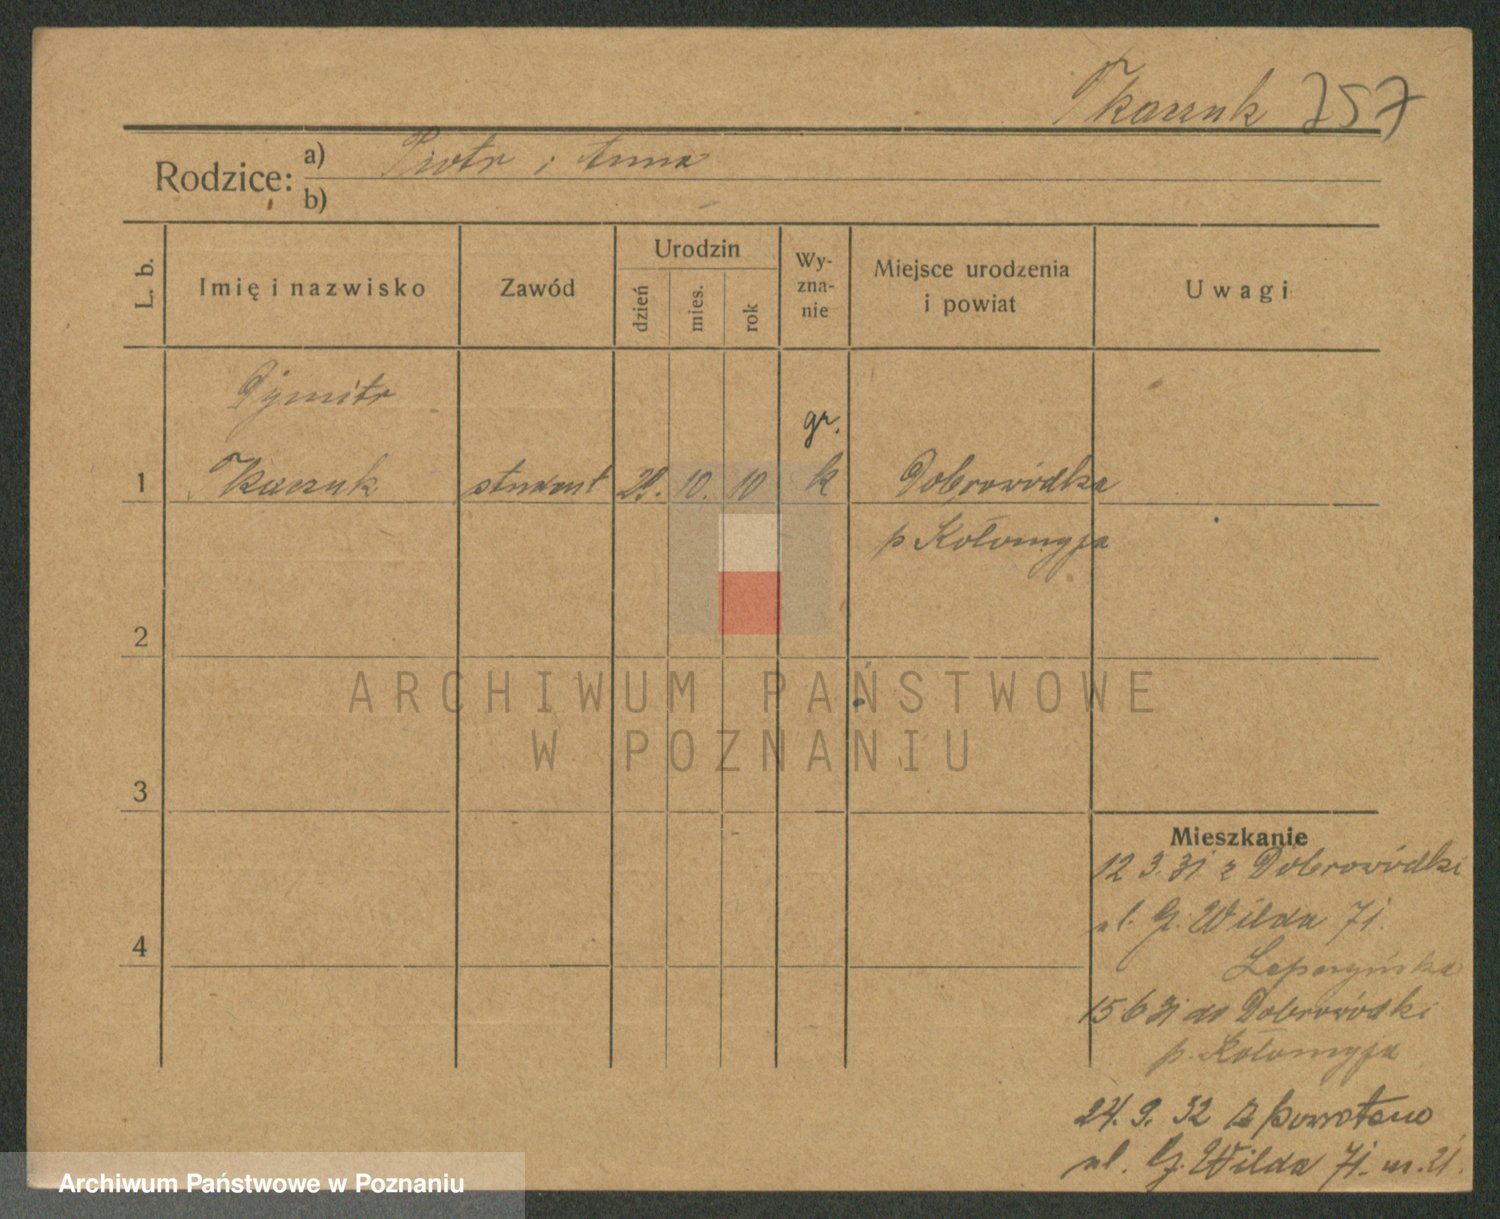 Tkaczuk 757
Rodzice: a) Piotr i Anna
b)
L. b.
Imię i nazwisko
Zawód
Urodzin
dzień
mies.
rok
Wy-
zna-
nie
Miejsce urodzenia
i powiat
Uwagi
Dymitr
gr.
1 Tkaczuk student 29. 10. 10 k Dobrowódka
p Kołomyja
2
3
4
Mieszkanie
12 3. 31 z Dobrowódki
ul. G. Wilda 71.
15 6 31 do Dobrowódki
p. Kołomyja
24. 9. 32 z powrotem
ul. G. Wilda 71. m. 21.
ARCHIWUM PAŃSTWOWE
W POZNANIU
Archiwum Państwowe w Poznaniu